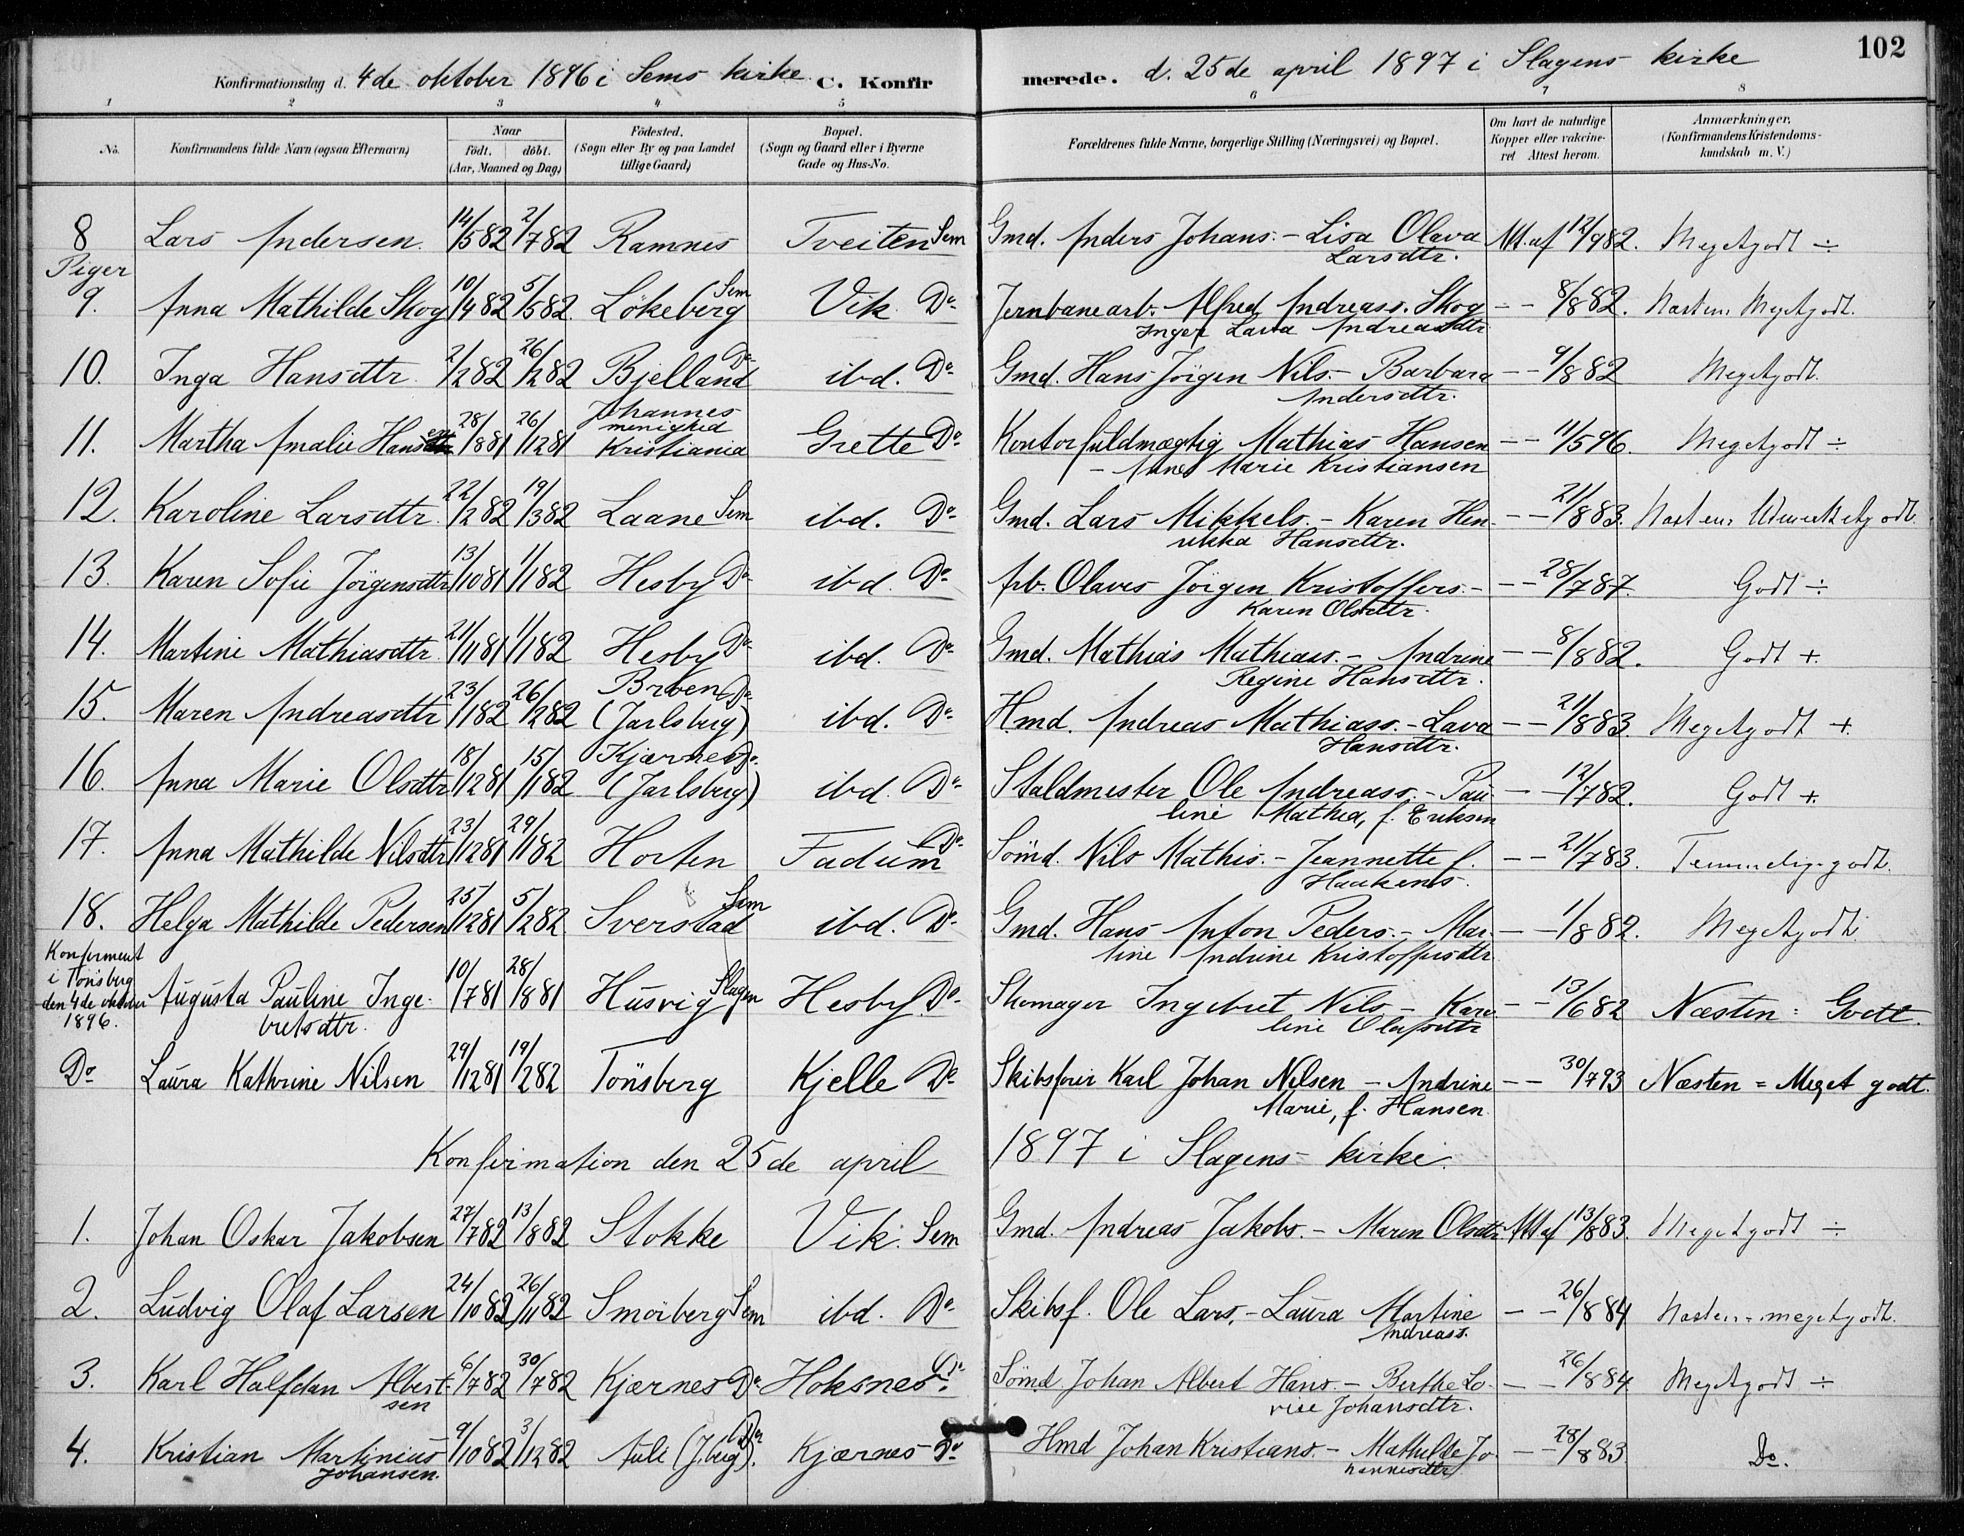 102
Konfirmationsdag d. 4de oktober 1896 i Sems kirke. C. Konfirmerede. d. 25de april 1897 i Slagens kirke
1 2 3 4 5 6 7 8
No. Konfirmandens fulde Navn (ogsaa Efternavn) Naar födt. döbt. (Aar, Maaned og Dag) Födested. (Sogn eller By og paa Landet tillige Gaard) Bopæl. (Sogn og Gaard eller i Byerne Gade og Hus-No. Forældrenes fulde Navne, borgerlige Stilling (Næringsvei) og Bopæl. Om havt de naturlige Kopper eller vakcineret Attest herom. Anmærkninger. (Konfirmandens Kristendomskundskab m. V.)
8 Lars Andersen. 14/5 82 2/7 82 Ramnes Tveiten Sem Gmd. Anders Johans. - Lisa Olava Larsdtr. Att. af 12/9 82. Megetgodt ÷
Piger
9. Anna Mathilde Skog 10/4 82 5/5 82 Lökeberg Sem Vik Do. Jernbanearb. Alfred Andreass. Skog Inger Lava Andreasdtr - - 8/8 82. Næsten Megetgodt.
10. Inga Hansdtr. 2/2 82 26/2 82 Bjelland Do ibd. Do. Gmd. Hans Jörgen Nils. - Barbara Andersdtr. - - 9/8 82 Megetgodt.
11. Martha Amalie Hansen 28/8 81 26/12 81 Johannes menighed Kristiania Grette Do. Kontorfuldmægtig Mathias Hansen - Anne Marie Kristiansen - - 11/5 96. Megetgodt ÷
12. Karoline Larsdtr. 22/2 82 19/3 82 Laane Sem ibd. Do. Gmd. Lars Mikkels. - Karen Henrikka Hansdtr. - - 21/8 83. Næsten Udmerketgodt.
13. Karen Sofie Jörgensdtr 13/10 81 1/1 82 Hesby Do ibd. Do. Arb. Olaves Jörgen Kristoffers. - Karen Olsdtr. - - 28/7 87. Godt ÷
14. Martine Mathiasdtr. 21/11 81 1/1 82 Hesby Do ibd. Do. Gmd. Mathias Mathiass. - Andrine Regine Hansdtr. - - 8/8 82. Godt +.
15. Maren Andreasdtr 23/1 82 26/2 82 Broen Do (Jarlsberg) ibd. Do. Hmd. Andreas Mathiass. - Lava Hansdtr. - - 21/8 83 Megetgodt +.
16. Anna Marie Olsdtr 18/12 81 15/1 82 Kjærnes Do. (Jarlsberg) ibd. Do. Staldmester Ole Andreass. - Pauline Mathea, f. Eriksen - - 12/7 82. Godt +.
17. Anna Mathilde Nilsdtr 23/12 81 29/1 82 Horten Fadum Do. Sömd. Nils Mathis. - Jeannette f. Haakens. - - 21/7 83. Temmelig godt.
18. Helga Mathilde Pedersen 25/12 81 5/2 82 Sverstad Sem ibd. Do. Gmd. Hans Anton Peders. - Marline Andrine Kristoffersdtr - - 1/8 82. Megetgodt
Konfirmert i Tönsberg den 4de oktober 1896. Augusta Pauline Ingebretsdtr. 10/7 81 28/8 81 Husvig Slagen Hesby Do. Skomager Ingebret Nils. - Karoline Olafsdtr - - 13/6 82 Næsten = Godt.
Do Laura Kathrine Nilsen 29/12 81 19/2 82 Tönsberg Kjelle Do. Skibsförer Karl Johan Nilsen - Andrine Marie, f. Hansen. - - 30/7 93 Næsten = Meget godt.
Konfirmation den 25de april 1897 i Slagens kirke.
1. Johan Oskar Jakobsen 27/7 82 13/8 82 Stokke Vik. Sem Gmd. Andreas Jakobs. - Maren Olsdtr. Att af 13/8 83. Megetgodt ÷
2. Ludvig Olaf Larsen 24/10 82 26/11 82 Smöiberg Sem ibd. Do. Skibsf. Ole Lars. - Laura Martine Andreass. - - 26/8 84 Næsten = megetgodt.
3. Karl Halfdan Albertsen 6/7 82 30/7 82 Kjærnes Do. Hoksnes Do. Sömd. Johan Albert Hans. - Berthe Lovise Johansdtr. - - 26/8 84 Megetgodt ÷
4. Kristian Martinius Johansen. 9/10 82 3/12 82 Auli (J.berg) Do. Kjærnes Do Hmd Johan Kristians. - Mathilde Johannesdtr - - 28/8 83. Do.